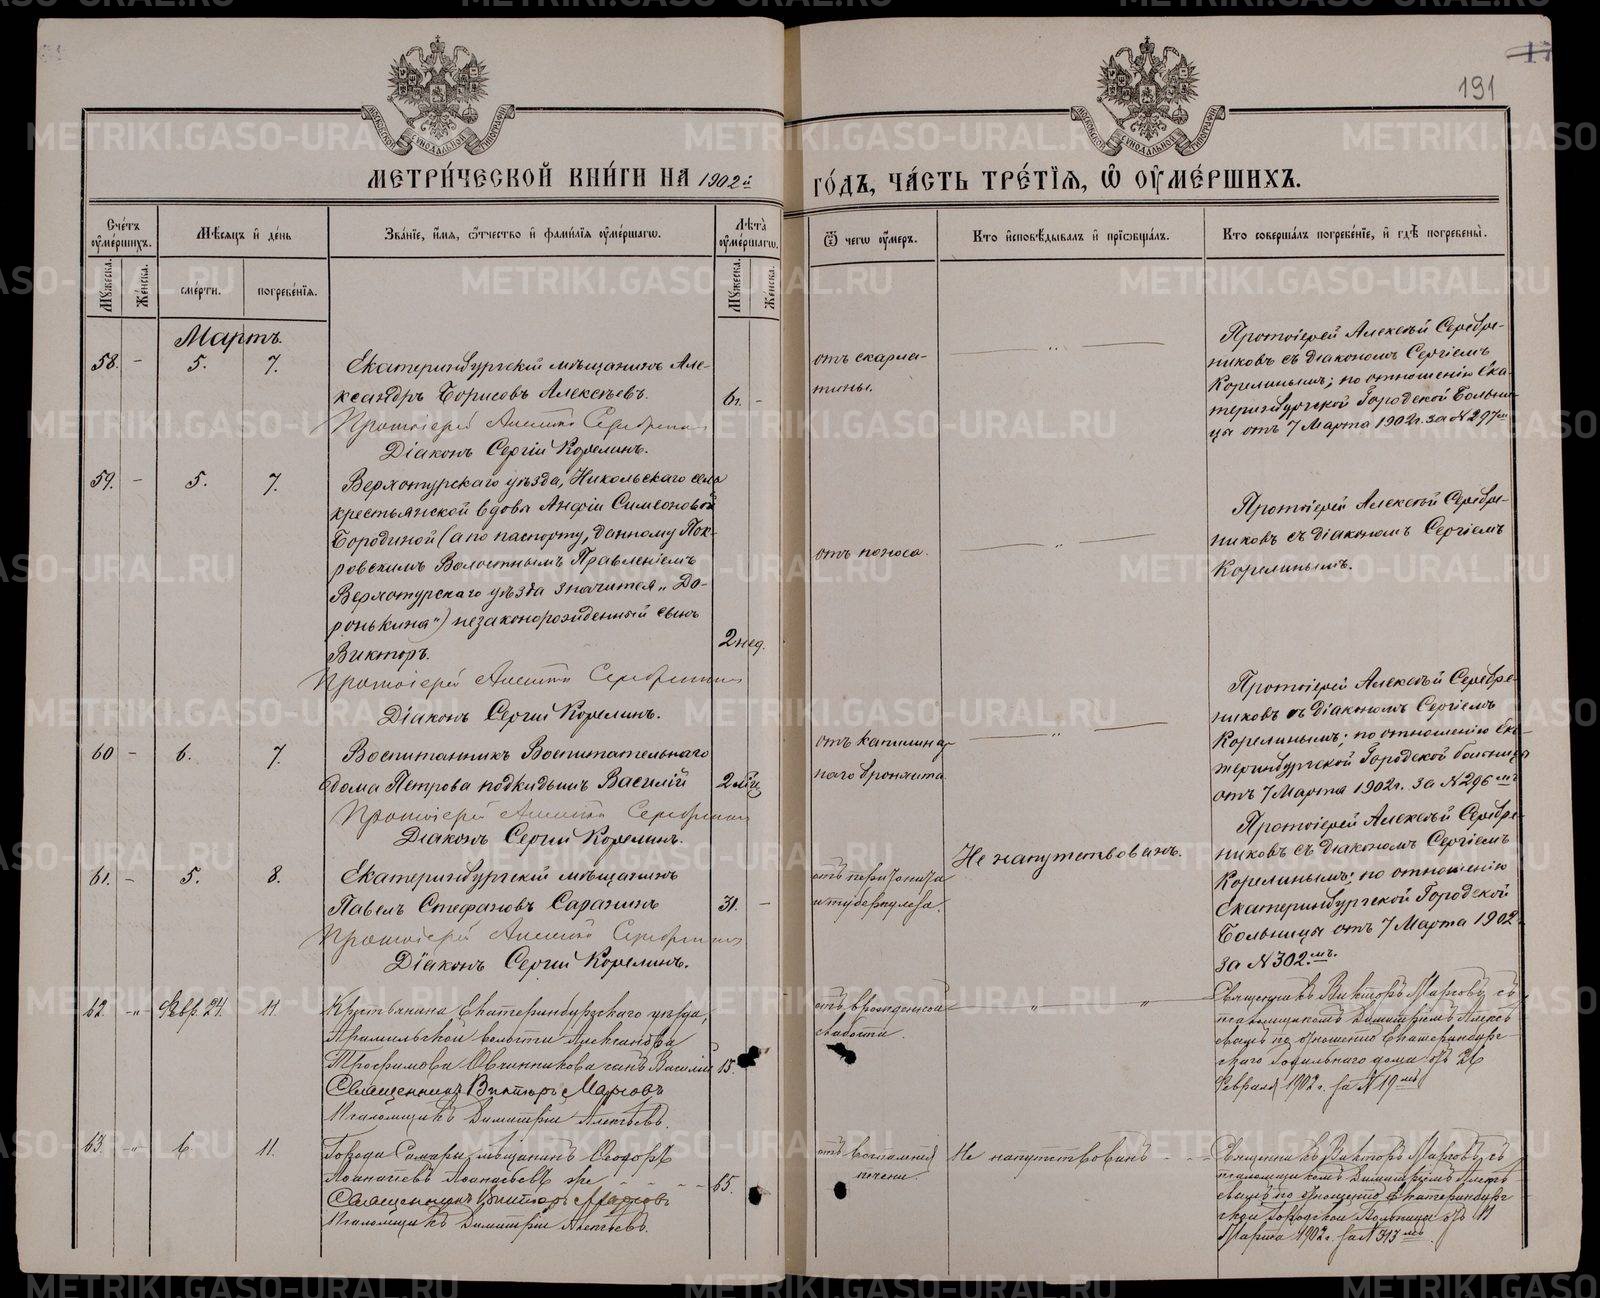 191
МЕТРИЧЕСКОЙ КНИГИ НА 1902й
ГОДЪ, ЧАСТЬ ТРЕТІЯ, Ѿ ОУМЕРШИХЪ.
Счетъ оумершихъ.
Мѣсяцъ и день
Званіе, имя, отчество и фамилія оумершагѡ.
Лѣта оумершагѡ.
Ѿ чегѡ оумеръ.
Кто исповѣдывалъ и пріѡбщалъ.
Кто совершалъ погребеніе, и гдѣ погребены.
Мужеска.
Женска.
смерти.
погребенія.
Мужеска.
Женска.
Мартъ.
58. - 5. 7.
Екатеринбургскій мѣщанинъ Але-
ксандръ Борисовъ Алексѣевъ.
6 г. -
Протоіерей Алексій Серебренников
Діаконъ Сергій Корелинъ.
отъ скарла-
тины.
Протоіерей Алексѣй Серебре-
никовъ съ діакономъ Сергіемъ
Корелинымъ; по отношенію Ека-
теринбургской Городской Больни-
цы отъ 7 Марта 1902 г. за N 297м
59. - 5. 7.
Верхотурскаго уѣзда, Никольскаго села
крестьянской вдовы Анфіи Симеоновой
Бородиной (а по паспорту, данному Пок-
ровскимъ Волостнымъ Правленіемъ
Верхотурскаго уѣзда значится „До-
ронькина") незаконорожденный сынъ
Викторъ.
2 нед.
Протоіерей Алексій Серебренников
Діаконъ Сергій Корелинъ.
отъ поноса.
Протоіерей Алексѣй Серебре-
никовъ съ діакономъ Сергіемъ
Корелинымъ.
60 - 6. 7.
Воспитанникъ Воспитательнаго
дома Петрова подкидышъ Василій
2 мѣс
Протоіерей Алексій Серебренников
Діаконъ Сергій Корелинъ.
отъ капиляр
наго бронхита
Протоіерей Алексѣй Серебре-
никовъ съ діакономъ Сергіемъ
Корелинымъ; по отношенію Ека-
теринбургской Городской больницы
отъ 7 Марта 1902 г. за N 296мъ
61. - 5. 8.
Екатеринбургскій мѣщанинъ
Павелъ Стефановъ Саранинъ
31. -
Протоіерей Алексій Серебренников
Діаконъ Сергій Корелинъ.
отъ перитонита
и туберкулеза.
Не напутствованъ.
Протоіерей Алексѣй Серебре-
никовъ съ діакономъ Сергіемъ
Корелинымъ; по отношенію
Екатеринбургской Городской
Больницы отъ 7 Марта 1902
за N 302.мъ.
62. Февр. 24. 11.
Крестьянина Екатеринбургскаго уѣзда,
Арамильской волости Александра
Трофимова Овчинникова сынъ Василій
15.
Священникъ Викторъ Марковъ
Псаломщикъ Димитрій Алексѣевъ.
отъ врожденной
слабости.
Священникъ Викторъ Марковъ съ
псаломщикомъ Димитріемъ Алексѣ
евымъ по отношенію Екатеринбург-
скаго Родильнаго дома отъ 26
Февраля 1902 г. за N 19мъ
63. 6. 11.
Города Самары мѣщанинъ Ѳеодоръ
Аѳанасьевъ Аѳанасьевъ же
65.
Священникъ Викторъ Марковъ
Псаломщикъ Димитрій Алексѣевъ.
отъ воспаленія
печени.
Не напутствованъ
Священникъ Викторъ Марковъ съ
псаломщикомъ Димитріемъ Алексѣ-
евымъ по отношенію Екатеринбург
ской Городской больницы отъ 11
Марта 1902 г. за N 313мъ
METRIKI.GASO-URAL.RU